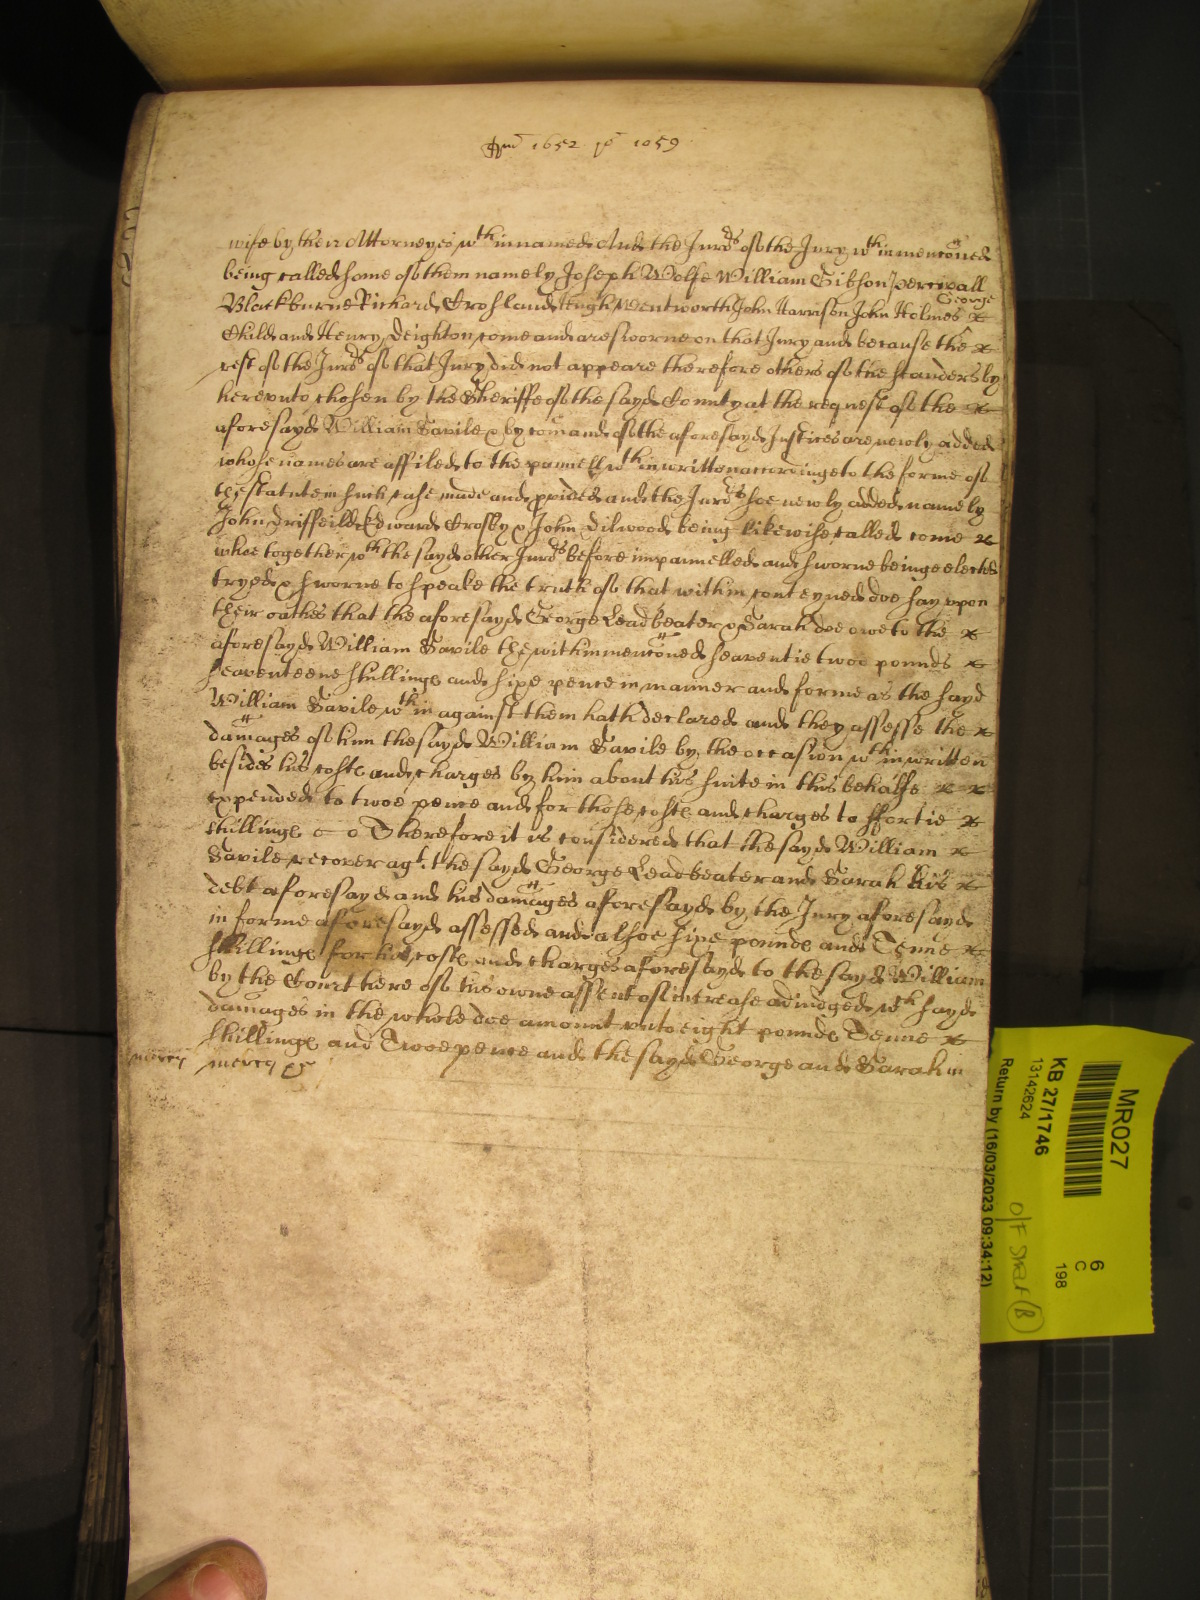 1652 ro 1059
wife by their Attorneyes wth innamed And the Jurors of the Jury wth in menconed
being called some of them namely Joseph Wolfe William Gibson Percivall
George
Blackburne Richard Crosland Hugh Wentworth John Harrison John Holmes
Child and Henry Deighton come and are sworne on that Jury and because the
rest of the Jurors of that Jury did not appeare therefore others of the standers by
hereunto chosen by the Sheriffe of the sayd County at the request of the
aforesayd William Savile & by comand of the aforesayd Justices are newly added
whose names are affiled to the pannell wth in written accordinge to the forme of
the statute in such case made and provided and the Jurors soe newly added namely
John Driffeild Edward Crosby & John Dilwood being likewise called come
whoe together wth the sayd other Jurors before impannelled and sworne beinge elected
tryed & sworne to speake the truth of that within conteyned doe say upon
their oathes that the aforesayd George Leadbeater & Sarah doe owe to the
aforesayd William Savile the within menconed seaventie twoe pounds
seaventeene shillings and sixe pence in manner and forme as the sayd
William Savile wth in against them hath declared and they assesse the
damages of him the sayd William Savile by the occasion wth in written
besides his costs and charges by him about his suite in this behalfe
expended to twoe pence and for those costs and charges to ffortie
shillings Therefore it is considered that the sayd William
Savile recover agt. the sayd George Leadbeater and Sarah his
debt aforesayd and his damages aforesayd by the Jury aforesayd
in forme aforesayd assessed and alsoe sixe pounds and Tenne
shillings for his costs and charges aforesayd to the sayd William
by the Court here of his owne assent of increase adiudged wch sayd
damages in the whole doe amount unto eight pounds Tenne
shillings and Twoe pence and the sayd George and Sarah in
mercy mercy &c
MR027
KB 27/1746
13142624
6
C
198
Return by (16/03/2023 09:34:12)
O/F
B